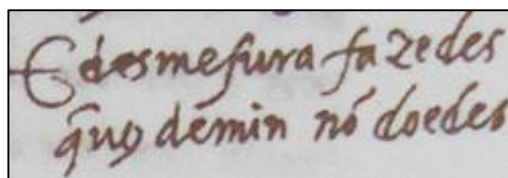 E desmesura fazedes
q̃uꝯ demin nõ doedes